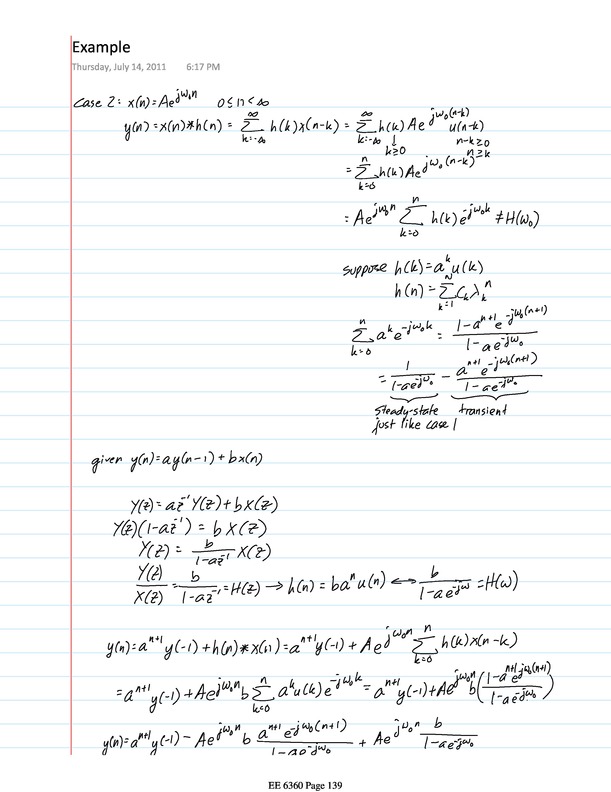 Example
Thursday, July 14, 2011 6:17 PM
Case 2: x(n)=Ae^{jω₀n} 0≤n<∞
y(n)=x(n)*h(n) = ∑_{k=-∞}^{∞} h(k)x(n-k) = ∑_{k=-∞}^{∞} h(k)Ae^{jω₀(n-k)} u(n-k)
↓ k≥0 n-k≥0 n≥k
= ∑_{k=0}^{n} h(k)Ae^{jω₀(n-k)}
= Ae^{jω₀n} ∑_{k=0}^{n} h(k)e^{-jω₀k} ≠ H(ω₀)
suppose h(k)=a^k u(k)
h(n) = ∑_{k=1}^{N} C_k λ_k^n
∑_{k=0}^{n} a^k e^{-jω₀k} = (1-a^{n+1}e^{-jω₀(n+1)})/(1-ae^{-jω₀})
= 1/(1-ae^{-jω₀}) - (a^{n+1}e^{-jω₀(n+1)})/(1-ae^{-jω₀})
steady-state transient
just like case 1
given y(n)=ay(n-1)+bx(n)
Y(z)=az^{-1}Y(z)+bX(z)
Y(z)(1-az^{-1}) = bX(z)
Y(z) = b/(1-az^{-1}) X(z)
Y(z)/X(z) = b/(1-az^{-1}) = H(z) → h(n) = ba^n u(n) ↔ b/(1-ae^{-jω}) = H(ω)
y(n)=a^{n+1}y(-1)+h(n)*x(n)=a^{n+1}y(-1)+Ae^{jω₀n} ∑_{k=0}^{n} h(k)x(n-k)
=a^{n+1}y(-1)+Ae^{jω₀n} b ∑_{k=0}^{n} a^k u(k)e^{-jω₀k} = a^{n+1}y(-1)+Ae^{jω₀n} b((1-a^{n+1}e^{jω₀(n+1)})/(1-ae^{-jω₀}))
y(n)=a^{n+1}y(-1) - Ae^{jω₀n} b (a^{n+1}e^{-jω₀(n+1)})/(1-ae^{-jω₀}) + Ae^{jω₀n} b/(1-ae^{-jω₀})
EE 6360 Page 139